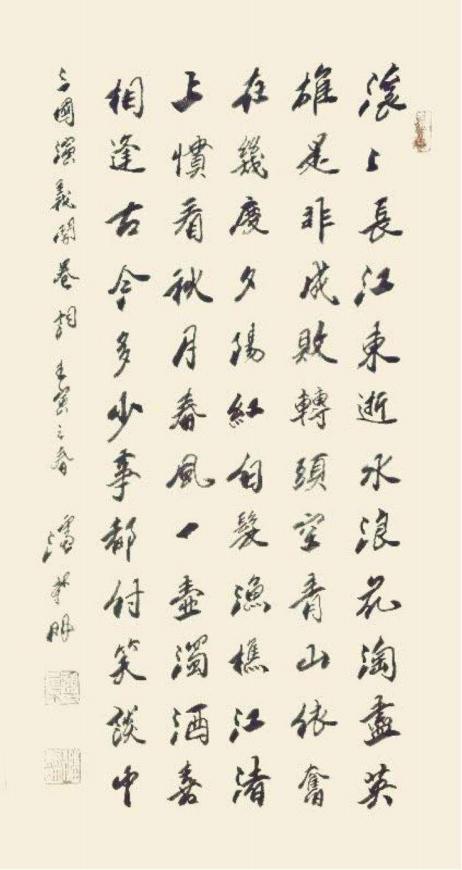 滾〻長江東逝水浪花淘盡英
雄是非成敗轉頭空青山依舊
在幾度夕陽紅白髮漁樵江渚
上慣看秋月春風一壺濁酒喜
相逢古今多少事都付笑談中
三國演義開卷詞 壬寅之春 潘